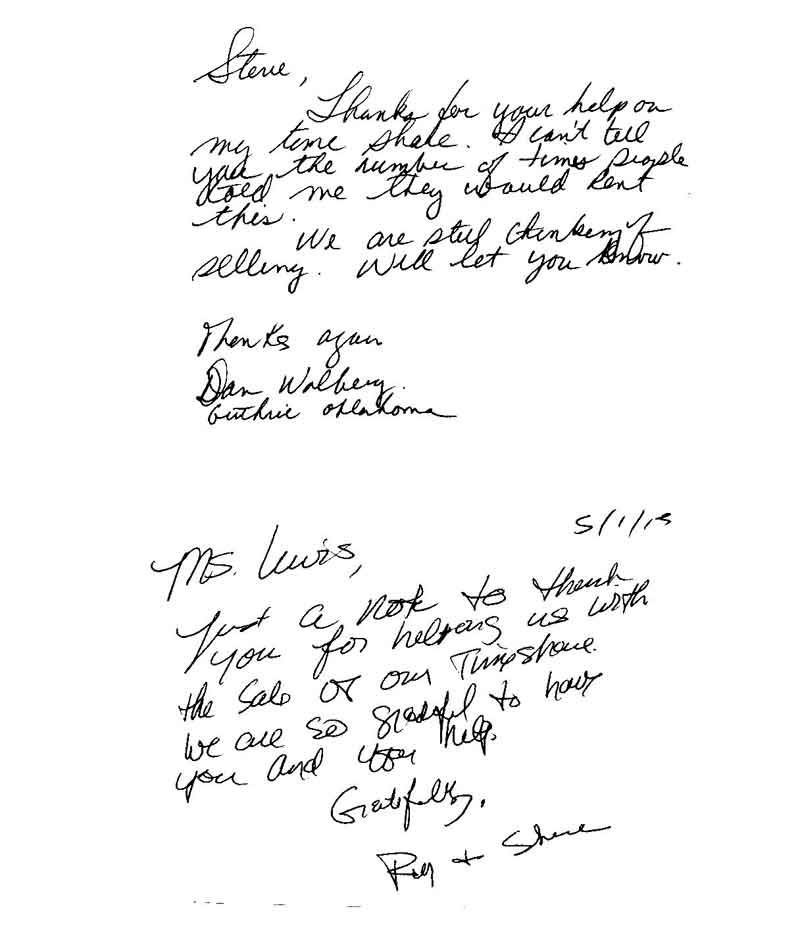 Steve,
Thanks for your help on
my time share. I can't tell
you the number of times people
told me they would rent
this.
We are still thinking of
selling. Will let you know.
Thanks again
Dan Walberg.
Guthrie Oklahoma
5/1/15
Ms. Lewis,
Just a note to thank
you for helping us with
the sale of our Timeshare.
We are so grateful to have
you and your help.
Gratefully,
+